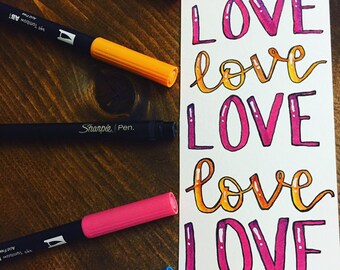 LOVE
love
LOVE
love
LOVE
Sharpie | Pen.